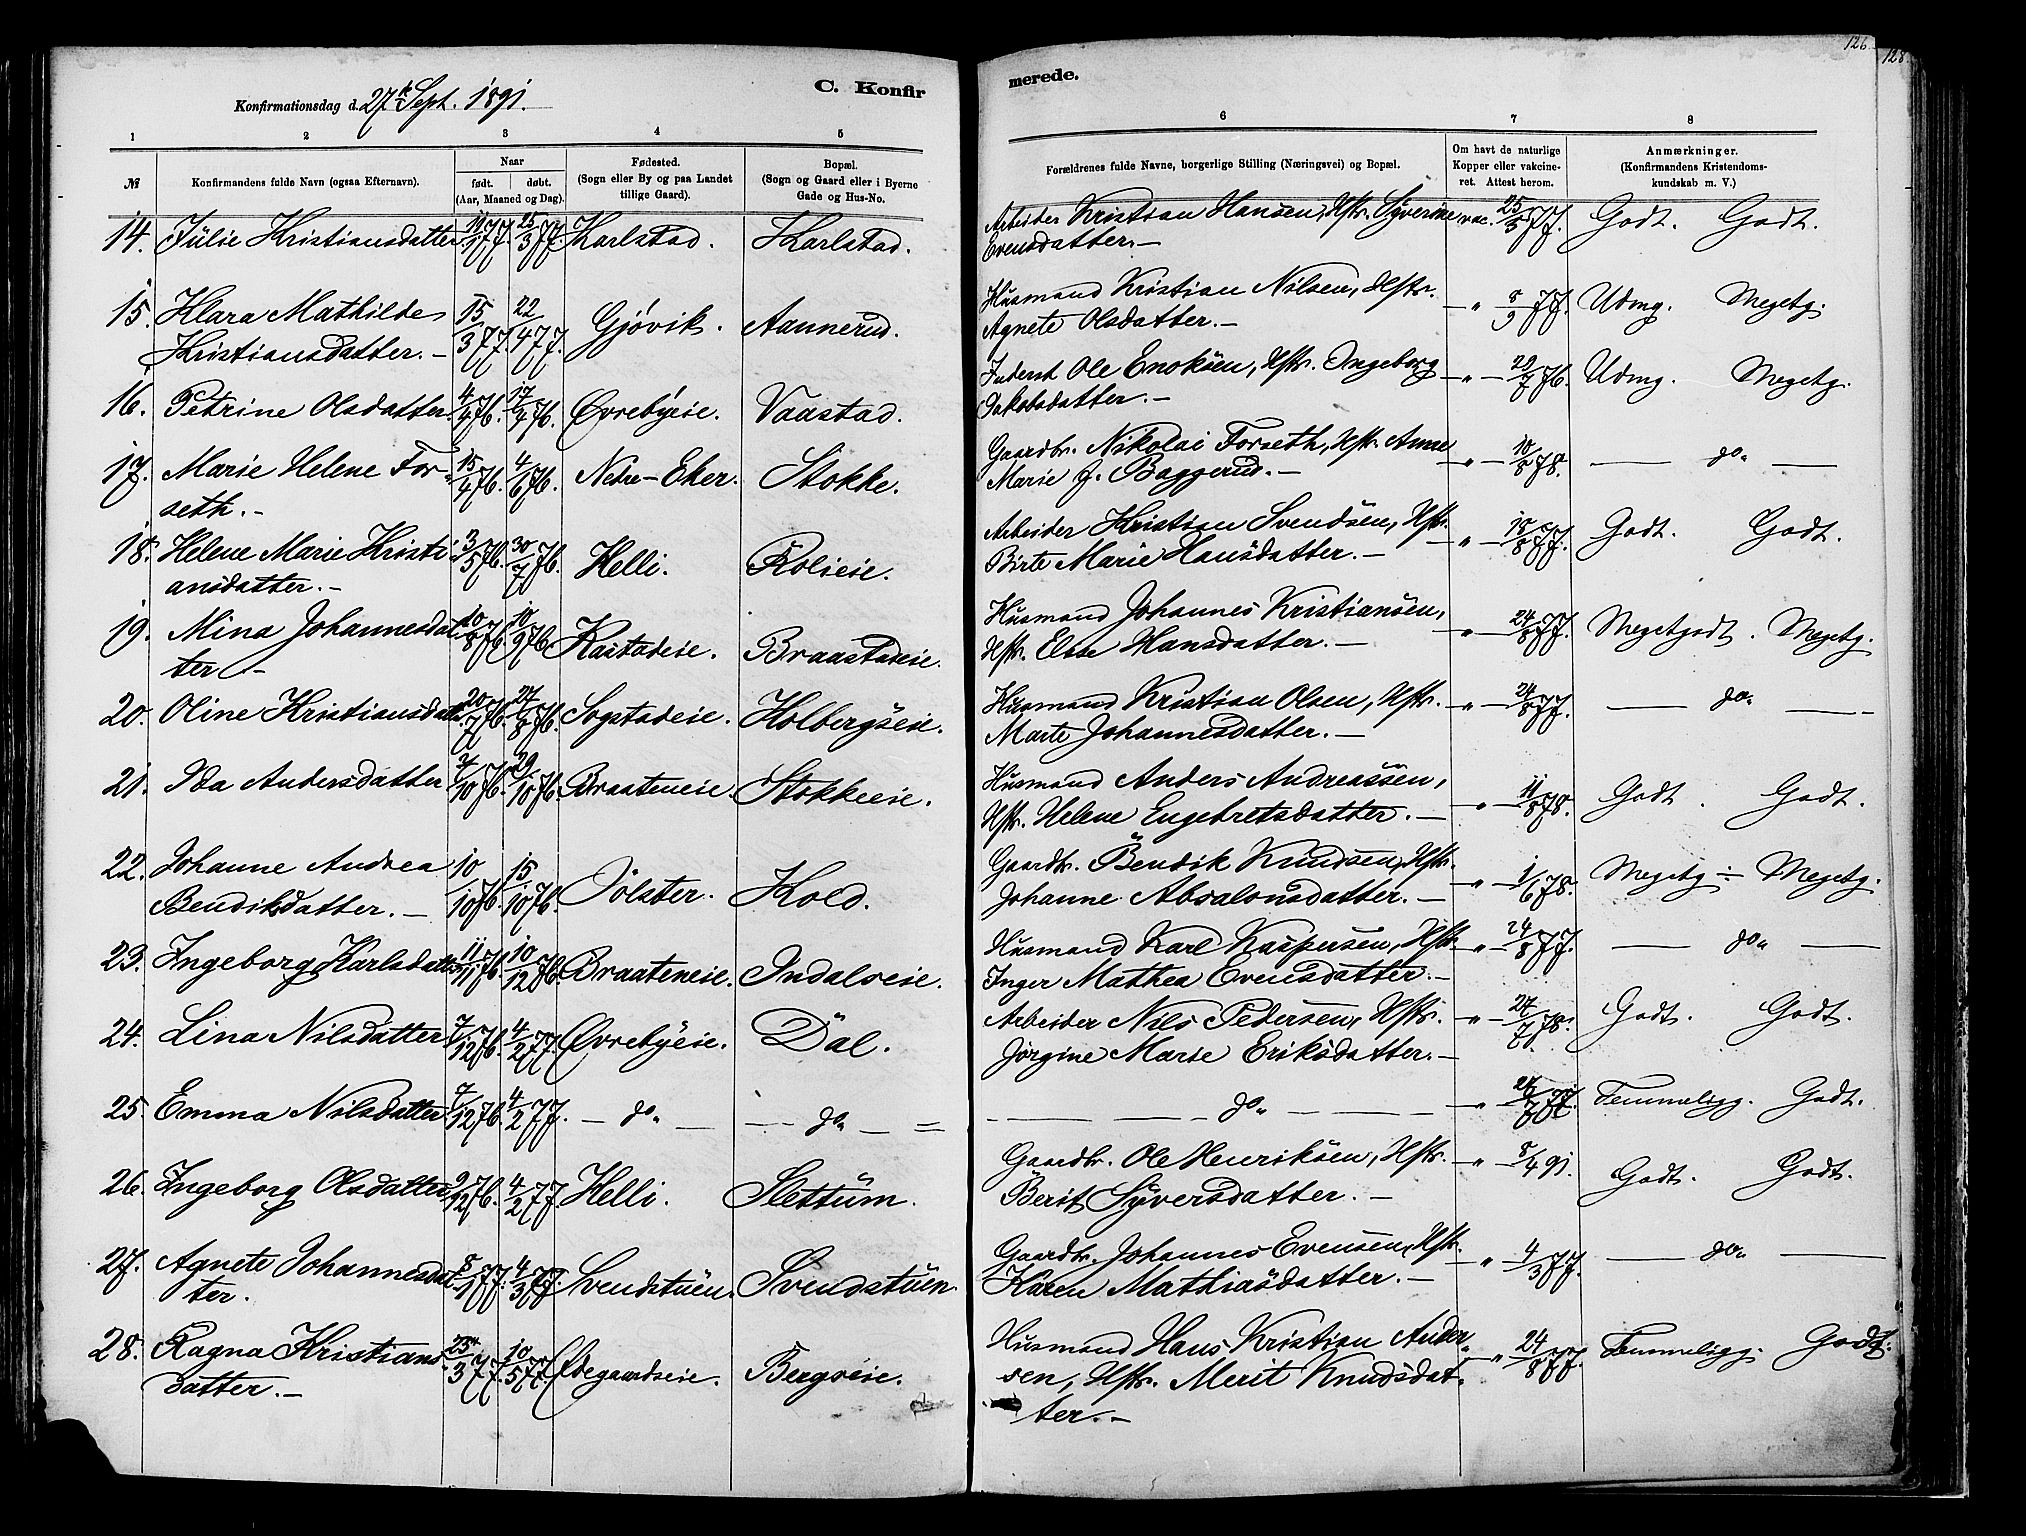 126
128
C. Konfir
merede.
Konfirmationsdag d. 27de Sept. 1891.
1 2 3 4 5 6 7 8
№ Konfirmandens fulde Navn (ogsaa Efternavn).
Naar
født. døbt.
(Aar, Maaned og Dag).
Fødested.
(Sogn eller By og paa Landet
tillige Gaard).
Bopæl.
(Sogn og Gaard eller i Byerne
Gade og Hus-No.
Forældrenes fulde Navne, borgerlige Stilling (Næringsvei) og Bopæl.
Om havt de naturlige
Kopper eller vakcine-
ret. Attest herom.
Anmærkninger.
(Konfirmandens Kristendoms-
kundskab m. V.)
14. Julie Kristiansdatter 11/1 77. 25/3 77. Karlstad. Karlstad. Arbeider Kristian Hansen, Hstr. Syverine vac. 25/5 77. Godt. Godt.
Evensdatter.—
15. Klara Mathilde 15/3 77. 22/4 77. Gjøvik. Aannerud. Husmand Kristian Nilsen, Hstr. " 8/9 77. Udmg. Megetg.
Kristiansdatter.— Agnete Olsdatter.—
16. Petrine Olsdatter 4/4 76. 17/4 76. Øvrebyeie. Vaastad. Inderst Ole Enoksen, Hstr. Ingeborg — " — 7 76. Udmg. Megetg.
Jakobsdatter.—
17. Marie Helene For- 15/4 76. 4/6 76. Nedre-Eker. Stokke. Gaardbr. Nikolai Forseth, Hstr. Anne — " — 10/8 78. — do" —
seth.— Marie J. Baggerud.—
18. Helene Marie Kristi- 3/5 76. 30/7 76. Helli. Rolieie. Arbeider Kristian Svendsen, Hstr. — " — 18/8 77. Godt. Godt.
ansdatter.— Birte Marie Hansdatter.—
19. Mina Johannesdat- 10/8 76 10/9 76 Kastadeie. Braastadeie. Husmand Johannes Kristiansen, — " — 24/8 77. Megetgodt. Megetg.
ter— Hstr. Else Hansdatter.—
20. Oline Kristiansdatt. 20/7 76. 27/8 76. Sogstadeie. Holbergseie. Husmand Kristian Olsen, Hstr. — " — 24/8 77. — do" —
Marte Johannesdatter.—
21. Ida Andersdatter 10 76. 29/10 76. Braateneie. Stokkeeie. Husmand Anders Andreassen, — " — 11/8 78. Godt. Godt.
Hstr. Helene Engebretsdatter.—
22. Johanne Andrea 10/10 76. 15/10 76. Jølster. Kold. Gaardbr. Bendik Knudsen, Hstr. — " — 1/6 78. Megetg ÷ Megetg.
Bendiksdatter.— Johanne Absalonsdatter.—
23. Ingeborg Karlsdatter 11/11 76. 10/12 76. Braateneie. Indalseie. Husmand Karl Kaspersen, Hstr. — " — 24/8 77. — do" —
Inger Mathea Evensdatter.—
24. Lina Nilsdatter 7/12 76. 4/2 77. Øvrebyeie. Dal. Arbeider Nils Pedersen, Hstr. — " — 27/7 78. Godt. Godt.
Jørgine Marie Eriksdatter.—
25. Emma Nilsdatter 7/12 76. 4/2 77. — do" — — do" — — do" — — " — Temmeligg. Godt.
26. Ingeborg Olsdatter 9/12 76. 4/2 77. Helli. Slettum. Gaardbr. Ole Henriksen, Hstr. — " — 8/4 91. Godt. Godt.
Berit Syversdatter.—
27. Agnete Johannesdat- 8/1 77. 4/3 77. Svendstuen. Svendstuen. Gaardbr. Johannes Evensen, Hstr. — " — 4/3 77. — do" —
ter. Karen Mathiasdatter.—
28. Ragna Kristians- 25/3 77. 10/5 77. Ødegaardseie. Bergseie. Husmand Hans Kristian Ander- — " — 24/8 77. Temmeligg. Godt.
datter.— sen, Hstr. Merit Knudsdat-
ter.—